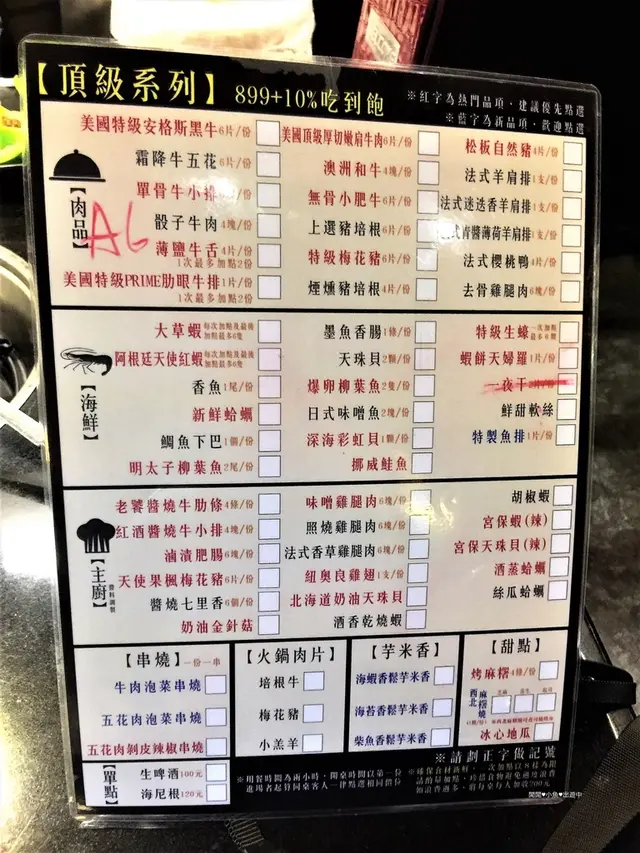 【頂級系列】 899+10%吃到飽
※紅字為熱門品項、建議優先點選
※藍字為新品項、歡迎點選
【肉品】
A6
美國特級安格斯黑牛6片/份
霜降牛五花6片/份
單骨牛小排
骰子牛肉4塊/份
薄鹽牛舌4片/份
1次最多加點2份
美國特級PRIME肋眼牛排1片/份
1次最多加點2份
美國頂級厚切嫩肩牛肉6片/份
澳洲和牛4塊/份
無骨小肥牛6片/份
上選豬培根6片/份
特級梅花豬6片/份
煙燻豬培根4片/份
松板自然豬4片/份
法式羊肩排1支/份
法式迷迭香羊肩排1支/份
式青醬薄荷羊肩排1支/份
法式櫻桃鴨4片/份
去骨雞腿肉6塊/份
【海鮮】
大草蝦 每次加點及最後加點最多6隻
阿根廷天使紅蝦 每次加點及最後加點最多6隻
香魚1尾/份
新鮮蛤蠣
鯛魚下巴1個/份
明太子柳葉魚2尾/份
墨魚香腸1條/份
天珠貝2顆/份
爆卵柳葉魚2隻/份
日式味噌魚2塊/份
深海彩虹貝1顆/份
挪威鮭魚
特級生蠔
蝦餅天婦羅1片/份
一夜干
鮮甜軟絲
特製魚排1片/份
【主廚】
醬料調製
老饕醬燒牛肋條4條/份
紅酒醬燒牛小排4塊/份
滷漬肥腸6塊/份
天使果楓梅花豬6片/份
醬燒七里香6個/份
奶油金針菇
味噌雞腿肉6塊/份
照燒雞腿肉6塊/份
法式香草雞腿肉6塊/份
紐奧良雞翅1支/份
北海道奶油天珠貝
酒香乾燒蝦
胡椒蝦
宮保蝦(辣)
宮保天珠貝(辣)
酒蒸蛤蠣
絲瓜蛤蠣
【串燒】一份一串
牛肉泡菜串燒
五花肉泡菜串燒
五花肉剝皮辣椒串燒
【火鍋肉片】
培根牛
梅花豬
小羔羊
【芋米香】
海蝦香鬆芋米香
海苔香鬆芋米香
柴魚香鬆芋米香
【甜點】
烤麻糬4條/份
西北麻糬燒
冰心地瓜
【單點】
生啤酒100元
海尼根120元
※請劃正字做記號
※用餐時間為兩小時、開桌時間以第一位
進場者起算同桌客人一律點選相同價位
閒閒♥小魚♥出遊中